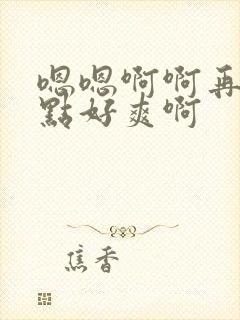 嗯嗯啊啊再
點好爽啊
焦香